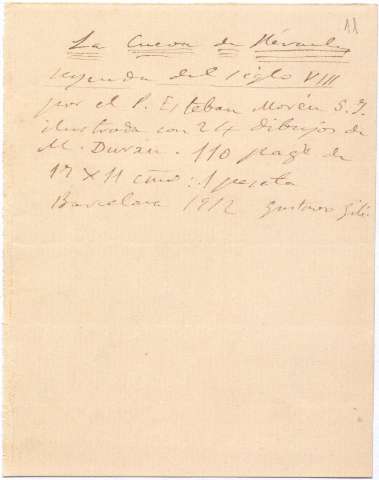 11
La Cueva de Hércules
leyenda del siglo VIII
por el P. Esteban Moréu S.J.
ilustrada con 24 dibujos de
M. Duran. 110 pags de
17 X 11 cms: 1 peseta
Barcelona 1912 Gustavo Gili